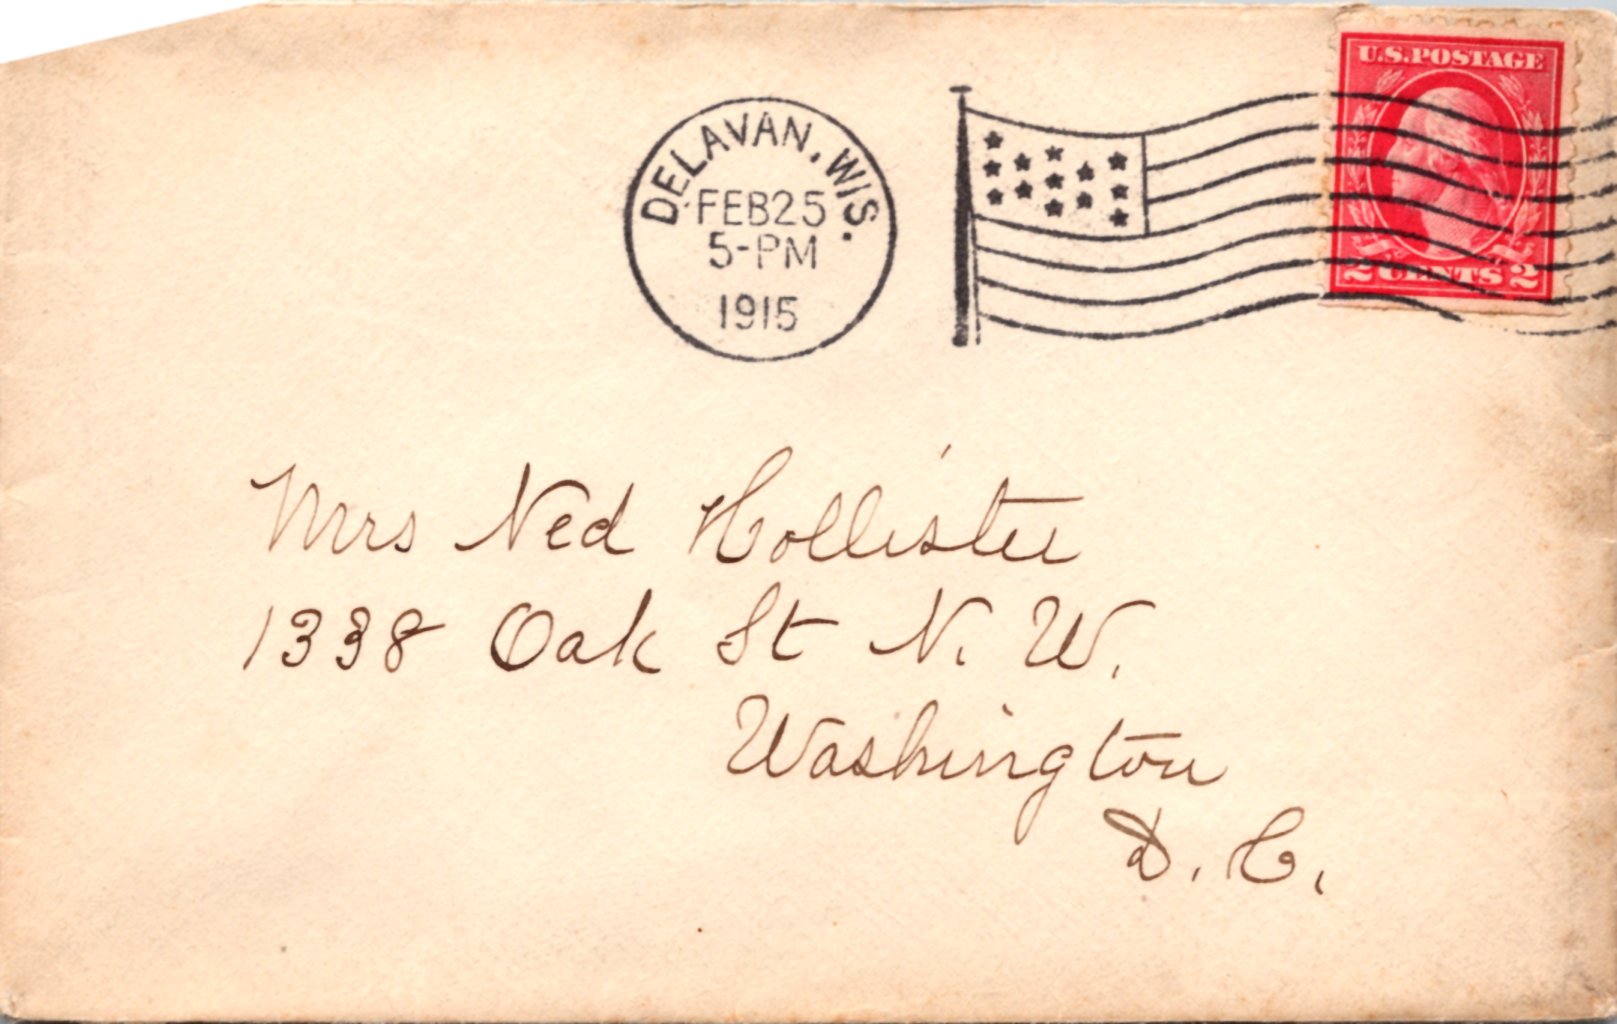 DELAVAN, WIS.
FEB 25
5-PM
1915
U.S. POSTAGE
2 CENTS 2
Mrs Ned Hollister
1338 Oak St N. W.
Washington
D. C.